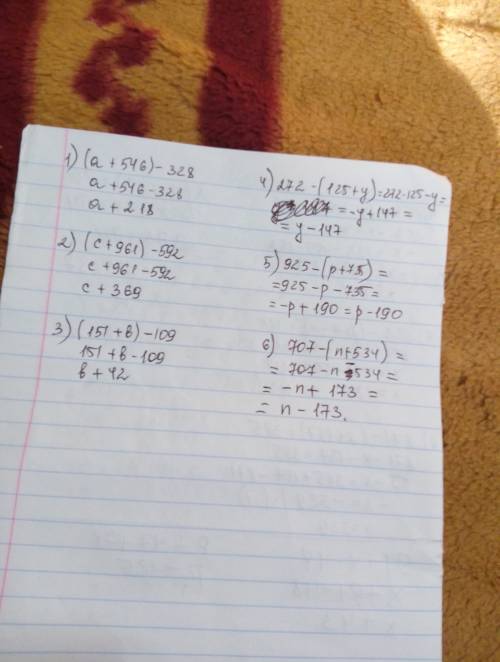 1) (a + 546) - 328
a + 546 - 328
a + 218
2) (c + 961) - 592
c + 961 - 592
c + 369
3) (151 + в) - 109
151 + в - 109
в + 42
4) 272 - (125 + y) = 272 - 125 - y =
= -y + 147 =
= y - 147
5) 925 - (p + 735) =
= 925 - p - 735 =
= -p + 190 = p - 190
6) 707 - (n + 534) =
= 707 - n - 534 =
= -n + 173 =
= n - 173.